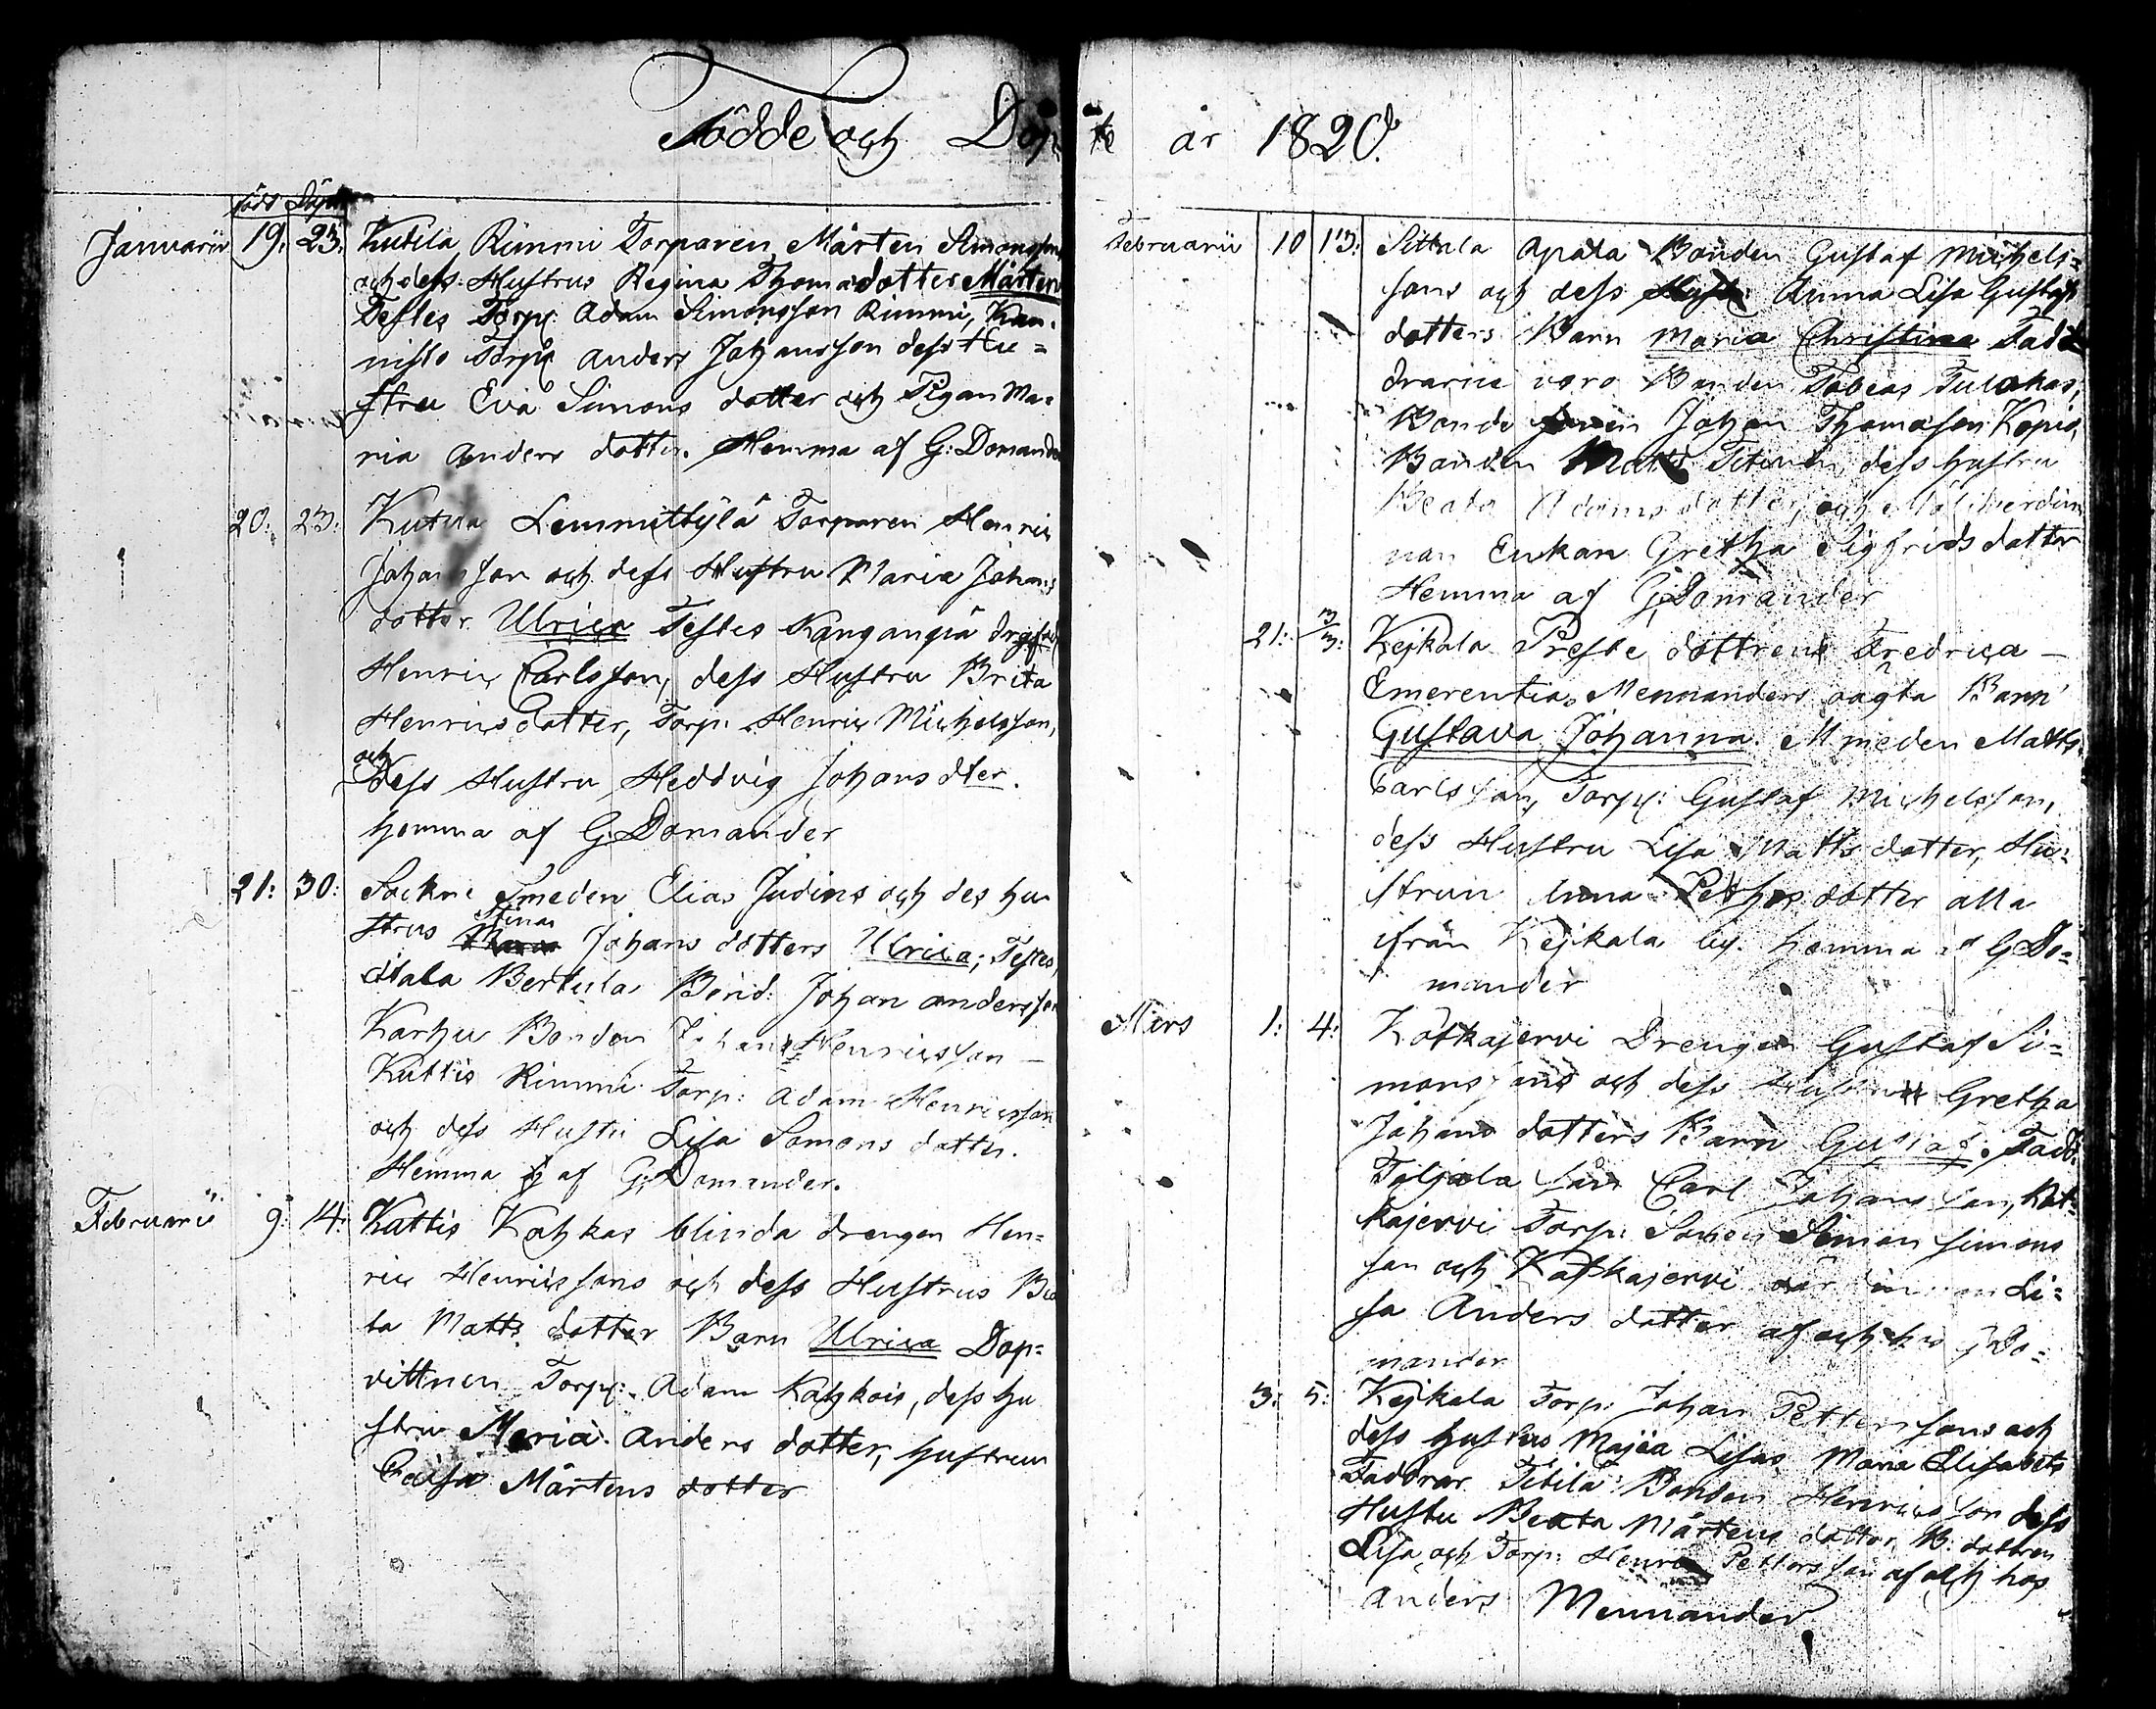 Födde och Döp-
te år 1820.
född Döpt
Januarii 19. 23. Kutila Rimmi Torparen Mårten Simonsson
och dess Hustrus Regina Thomædotter Mårten
Testes Torp: Adam Simonsson Rimmi, Kan-
nisto Torp: Anders Johansson dess Hu=
stru Eva Simons dotter och Pigan Ma=
ria Anders dotter. Hemma af G: Domander
20: 23: Kutila Lemmettylä Torparen Henric
Johansson och dess Hustru Maria Johans
dotter Ulrica Testes Kanganpä
Henric Carlsson, dess Hustru Brita
Henricsdotter, Torp: Henric Michelsson,
och
dess Hustru Heddvig Johans dter.
hemma af G: Domander
21: 30: Sockne Smeden Elias Judins och des hu
Stinas
strus Johans dotters Ulrica; Testes,
Bertula Bond: Johan andersson
Karhu Bonden Johan Henricsson –
Kuttis Rimmi Torp: Adam Henricsson
och dess Hustru Lisa Somons dotter.
Hemma af G: Domander.
Februarii 9: 14: Kattis Kahkas blinda drengen Hen=
ric Henricssons och dess Hustrus
ta Matts dotter Barn Ulrica Dop=
vittnen Torp: Adam Kahkois, dess hu
stru Maria Anders dotter, hustrun
Caisa Mårtens dotter
Februarii 10 13: Sittala Apala Bonden Gustaf Michels=
sons och dess Anna Lisa Gustafs
dotters Barn Maria Christina Fadd
drarne voro Bonden Tobias Tulokas,
Bonde Johan Thomasson
Bonden Matts dess hustru
Beata Adams dotter, och
nan Enkan Gretha Sigfrids dotter
Hemma af G: Domander
21: 3/3: Kejkala Preste dottrens Fredrica –
Emerentia Mennanders oägta Barn
Gustava Johanna. Smeden Matts
Carlsson, Torp: Gustaf Michelsson,
dess Hustru Lisa Matts dotter, Hu=
strun Anna Petters dotter alla
ifrån Kejkala by. hemma af G Do=
mander
Mars 1: 4: Kotkajervi Drengen Gustaf Si=
monssons och dess Hustrus Gretha
Johans dotters Barn Gustaf. Fadd:
Carl Johansson, Kot=
kajervi Torp: Sonen Simon Simons
son och Kotkajervi Li=
sa Anders dotter af och hos G Do=
mander
3: 5: Kejkala Torp: Johan Petterssons och
dess hustrus Majia Lisas Maria Elisabets
Faddrar Titila Bonden Henricsson dess
Hustru Beata Mårtens dotter B: dottren
Lisa och Torp: Henric Pettersson af och hos
Anders Mennander